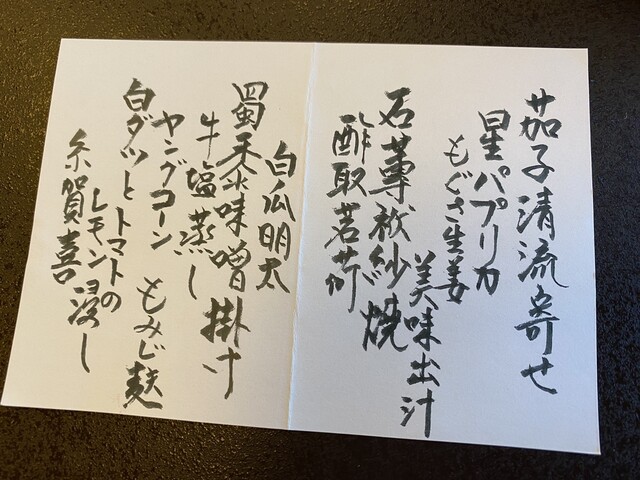 茄子清流寄せ
星パプリカ
もぐさ生姜
美味出汁
石蓴袱紗焼
酢取茗荷
白瓜明太
蜀黍味噌掛け
牛塩蒸し
ヤングコーン
もみじ麩
白ダツとトマトの
レモン浸し
糸賀喜